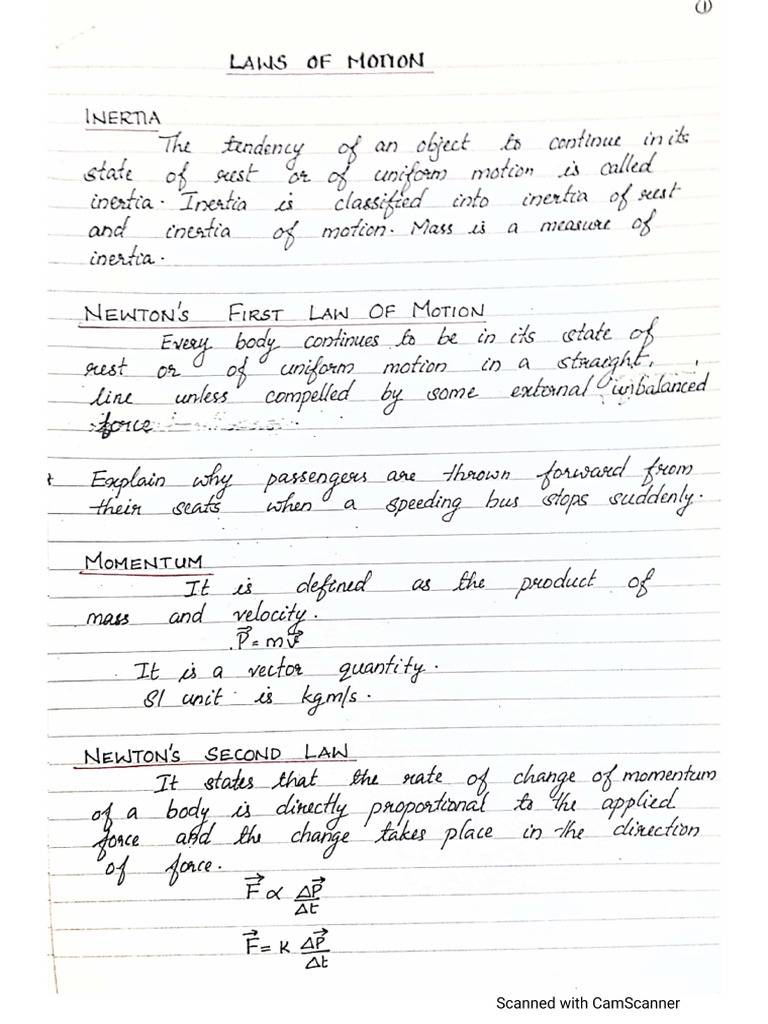 (1)
LAWS OF MOTION
INERTIA
The tendency of an object to continue in its
state of rest or of uniform motion is called
inertia. Inertia is classified into inertia of rest
and inertia of motion. Mass is a measure of
inertia.
NEWTON'S FIRST LAW OF MOTION
Every body continues to be in its state of
rest or of uniform motion in a straight
line unless compelled by some external unbalanced
force
Explain why passengers are thrown forward from
their seats when a speeding bus stops suddenly.
MOMENTUM
It is defined as the product of
mass and velocity.
P⃗ = mv⃗
It is a vector quantity.
SI unit is kgm/s.
NEWTON'S SECOND LAW
It states that the rate of change of momentum
of a body is directly proportional to the applied
force and the change takes place in the direction
of force.
F⃗ ∝ ΔP⃗/Δt
F⃗ = K ΔP⃗/Δt
Scanned with CamScanner